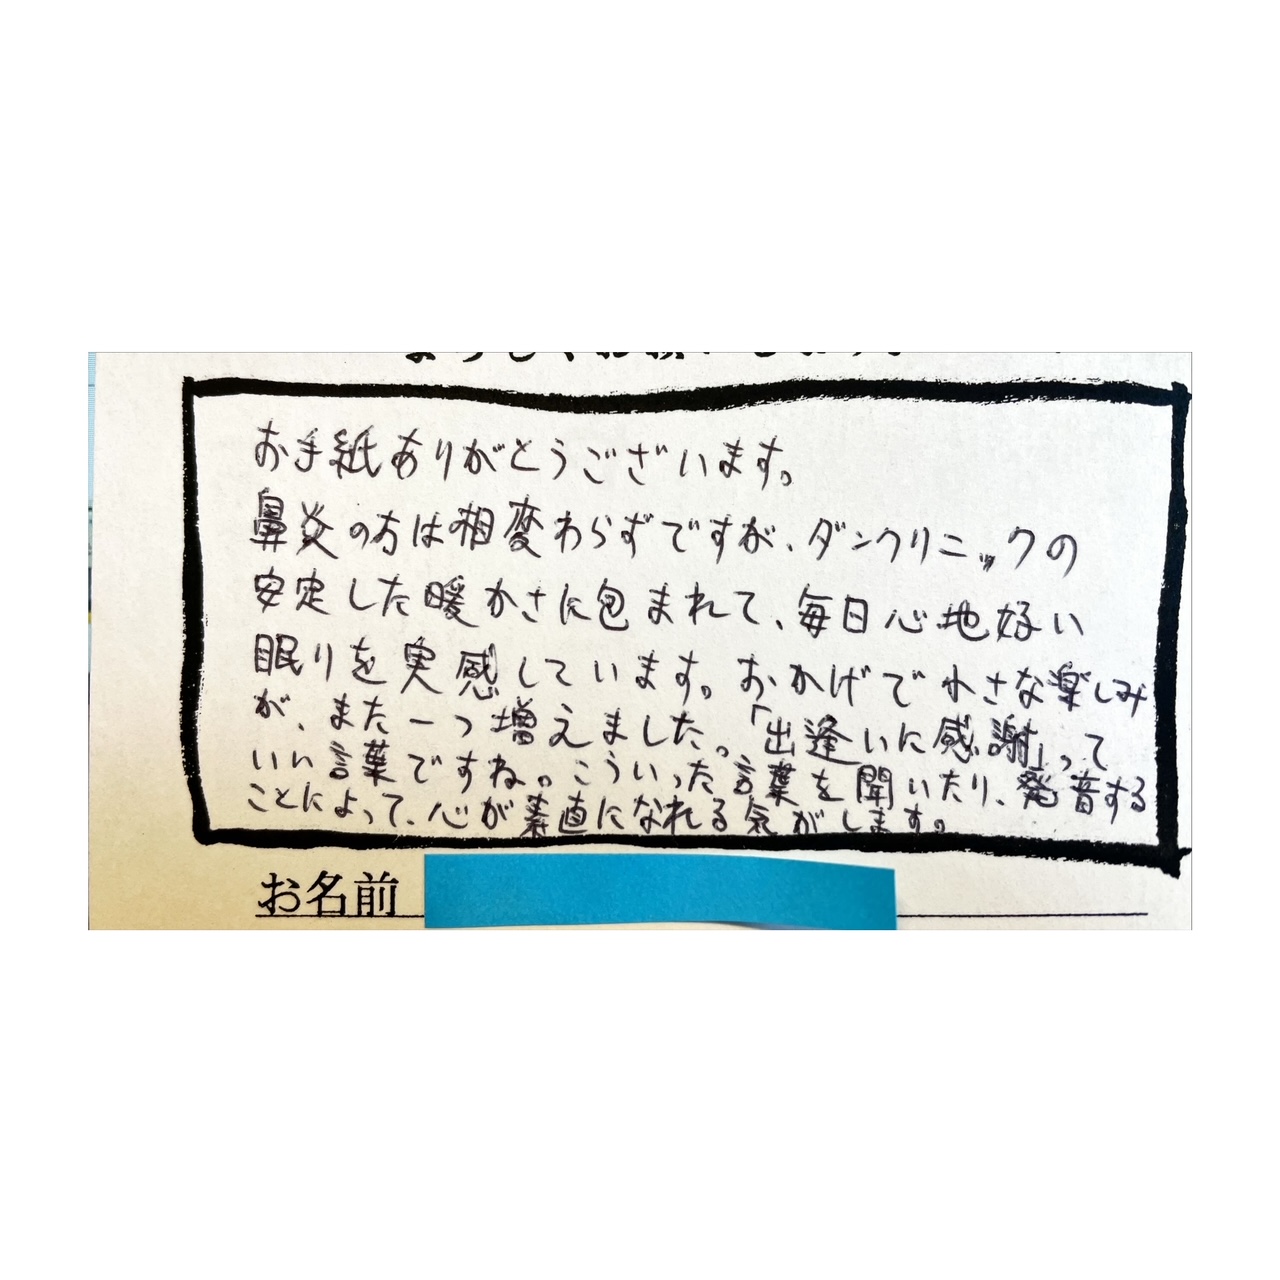 お手紙ありがとうございます。
鼻炎の方は相変わらずですが、ダンクリニックの
安定した暖かさに包まれて、毎日心地好い
眠りを実感しています。おかげで小さな楽しみ
が、また一つ増えました。「出逢いに感謝」って
いい言葉ですね。こういった言葉を聞いたり、発音する
ことによって、心が素直になれる気がします。
お名前